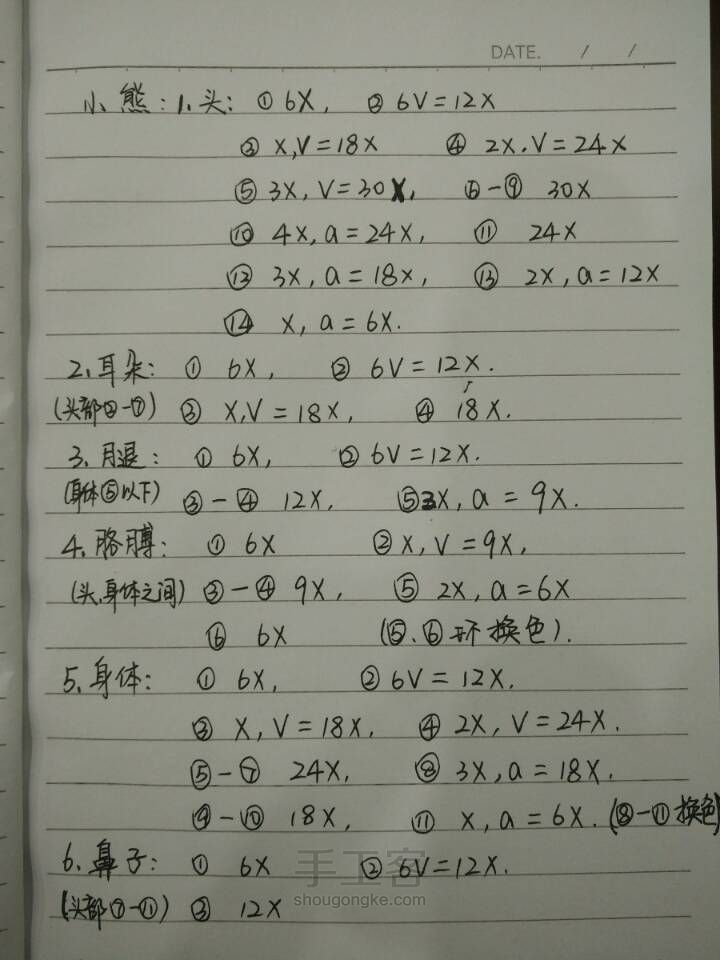 DATE. / /
小熊: 1.头: ① 6X, ② 6V=12X
③ X,V=18X ④ 2X.V=24X
⑤ 3X, V=30X, ⑥-⑨ 30X
⑩ 4X, a=24X, ⑪ 24X
⑫ 3X, a=18X, ⑬ 2X, a=12X
⑭ X, a=6X.
2.耳朵: ① 6X, ② 6V=12X.
(头部②-⑦) ③ X,V=18X, ④ 18X.
3.腿: ① 6X, ② 6V=12X.
(身体⑤以下) ③-④ 12X, ⑤3X, a=9X.
4.胳膊: ① 6X ② X, V=9X,
(头.身体之间) ③-④ 9X, ⑤ 2X, a=6X
⑥ 6X (⑤.⑥环换色).
5.身体: ① 6X, ② 6V=12X.
③ X, V=18X, ④ 2X, V=24X.
⑤-⑦ 24X, ⑧ 3X, a=18X.
⑨-⑩ 18X, ⑪ X, a=6X. (⑧-⑪换色)
6.鼻子: ① 6X ② 6V=12X.
(头部⑦-⑪) ③ 12X
手工客
shougongke.com